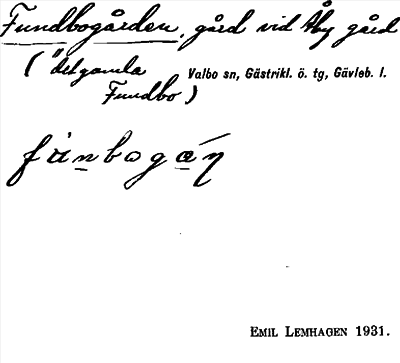 Fundbogården, gård vid Åby gård
("det gamla
Valbo sn, Gästrikl. ö. tg, Gävleb. l.
Fundbo)
EMIL LEMHAGEN 1931.